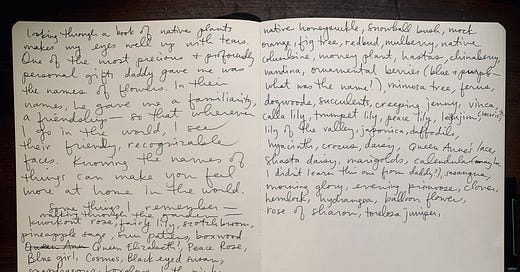 Looking through a book of native plants
makes my eyes well up with tears.
One of the most precious + profoundly
personal gifts daddy gave me was
the names of flowers. In their
names, he gave me a familiarity,
a friendship — so that wherever
I go in the world, I see
their friendly, recognizable
faces. Knowing the names of
things can make you feel
more at home in the world.
Some things I remember —
walking through the garden —
knockout rose, fairy lily, scotch broom,
pineapple sage, sun patiens, boxwood
Queen Ann Queen Elizabeth, Peace Rose,
Blue girl, Cosmos, Black eyed susan,
native honeysuckle, snowball bush, mock
orange, fig tree, redbud, mulberry, native
columbine, money plant, hastas, chinaberry,
nandina, ornamental berries (blue + purple —
what was the name?), mimosa tree, ferns,
dogwoods, succulents, creeping jenny, vinca,
calla lily, trumpet lily, peace lily,
lily of the valley, japonica, daffodils,
hyacinth, crocus, daisy, Queen Anne's lace,
shasta daisy, marigolds, calendula (maybe
I didn't learn this one from daddy?), sasanqua,
morning glory, evening primrose, clover,
hemlock, hydrangea, balloon flower,
rose of sharon, torulosa juniper,